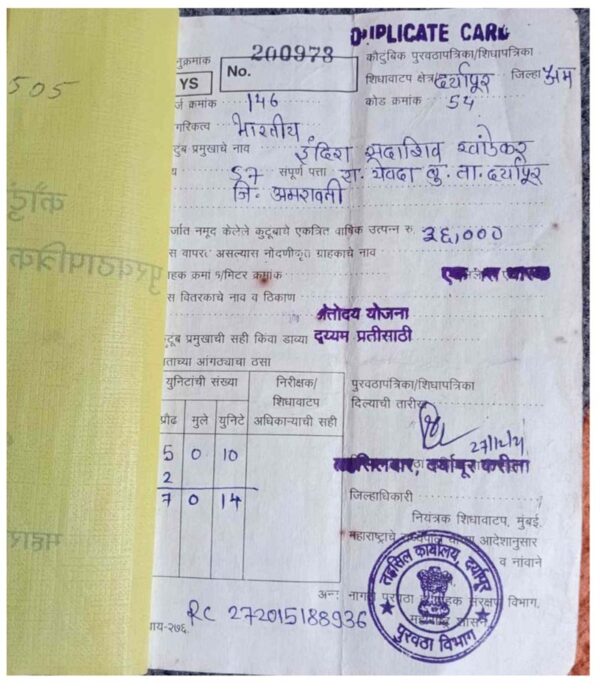 DUPLICATE CARD
नुक्रमांक 200973 कौटुबिक पुरवठापत्रिका/शिधापत्रिका
YS No. शिधावाटप क्षेत्र दर्यापूर जिल्हा अम
505
र्ज क्रमांक 146 कोड क्रमांक 54
गरिकत्व भारतीय
टुंब प्रमुखाचे नाव इंदिरा सदाशिव
57 संपूर्ण पत्ता रा. येवदा बु. ता. दर्यापूर
जि. अमरावती
र्जात नमूद केलेले कुटूबाचे एकत्रित वार्षिक उत्पन्न रु. ३६,०००
स वापरत असल्यास नोंदणीकृत ग्राहकाचे नाव
ाहक क्रमां १/मिटर क्रमांक
स वितरकाचे नाव व ठिकाण
त्योदय योजना
टूंब प्रमुखाची सही किंवा डाव्या दुय्यम प्रतीसाठी
ाताच्या आंगठ्याचा ठसा
युनिटांची संख्या निरीक्षक/ पुरवठापत्रिका/शिधापत्रिका
शिधावाटप दिल्याची तारीख
प्रौढ मुले युनिटे अधिकाऱ्याची सही
5 0 10
2
7 0 14
तहसिलदार, दर्यापूर करीता
जिल्हाधिकारी
नियंत्रक शिधावाटप, मुंबई.
महाराष्ट्राचे राज्यपाल यांच्या आदेशानुसार
व नांवाने
तहसिल कार्यालय, दर्यापूर
पुरवठा विभाग
अन्न नागरी पुरवठा व ग्राहक संरक्षण विभाग,
महाराष्ट्र शासन
RC 272015188936
ाय-२७६.
कौटुं
पुरवठापत्रिक
महार